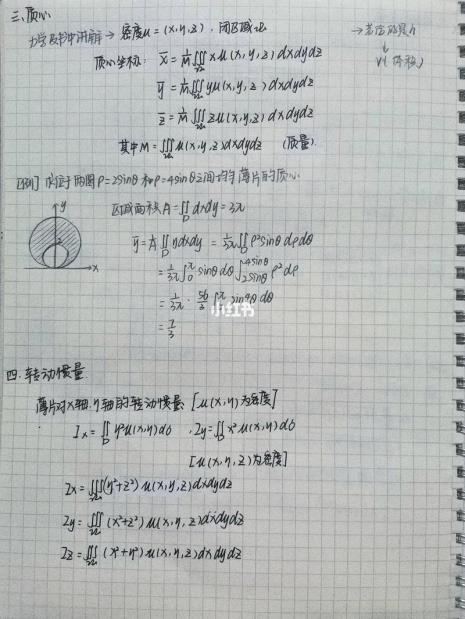 三、质心
密度μ = (x,y,z), 闭区域Ω
质心坐标: x̄ = 1/M ∭Ω xμ(x,y,z) dxdydz
ȳ = 1/M ∭Ω yμ(x,y,z) dxdydz
z̄ = 1/M ∭Ω zμ(x,y,z) dxdydz
其中M = ∭Ω μ(x,y,z)dxdydz (质量)
V(体积)
[例] 位于两圆ρ=2sinθ和ρ=4sinθ之间均匀薄片的质心
区域面积A = ∬D dxdy = 3π
ȳ = 1/A ∬D ydxdy = 1/3π ∬D ρ²sinθ dρdθ
= 1/3π ∫0^π sinθ dθ ∫2sinθ^4sinθ ρ² dρ
= 1/3π · 56/3 ∫0^π sin⁴θ dθ
= 7/3
y
x
小红书
四、转动惯量
薄片对x轴,y轴的转动惯量 [μ(x,y)为密度]
Ix = ∬D y²μ(x,y)dσ , Iy = ∬D x²μ(x,y)dσ
[μ(x,y,z)为密度]
Ix = ∭Ω (y²+z²) μ(x,y,z)dxdydz
Iy = ∭Ω (x²+z²) μ(x,y,z)dxdydz
Iz = ∭Ω (x²+y²) μ(x,y,z)dxdydz